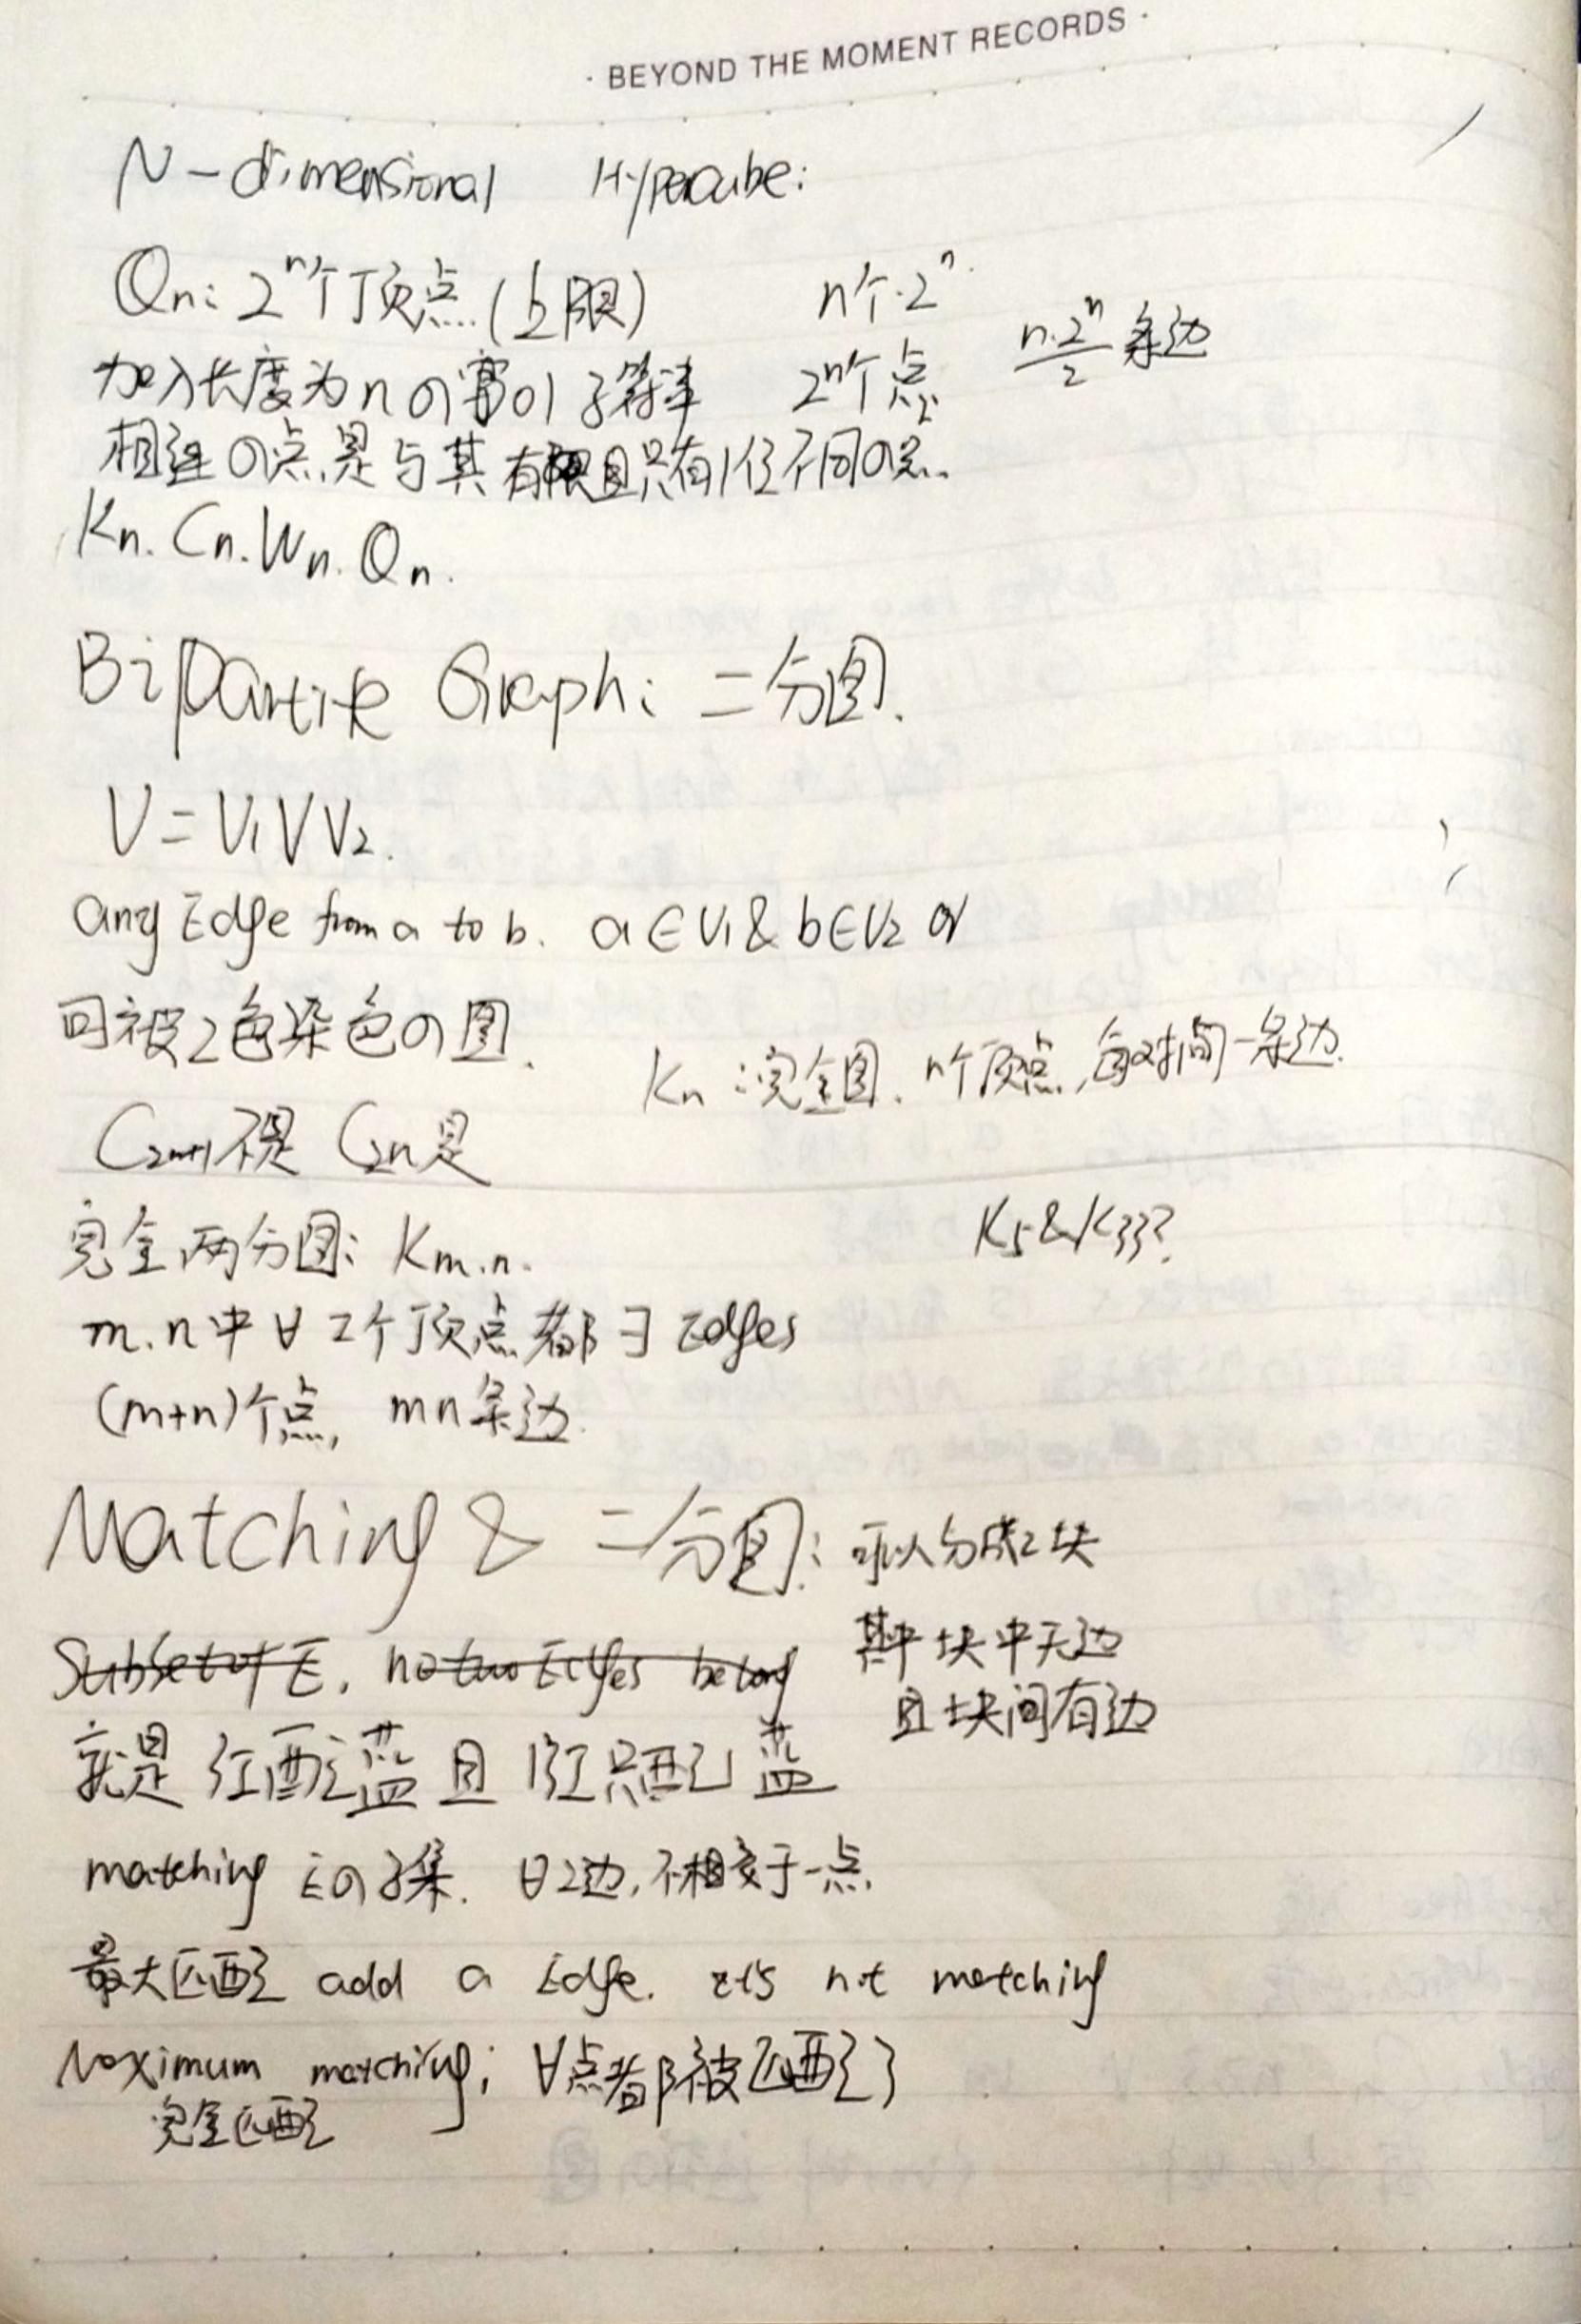 · BEYOND THE MOMENT RECORDS ·
N-dimensional Hypercube:
Qn: 2^n个顶点(上限) n个·2^n
n·2^n/2 条边
加入长度为nの 01子符串 2^n个点
相连の点是与其有且只有1位不同の点.
Kn. Cn. Wn. Qn.
Bipartite Graph: 二分图.
V=V1VV2.
any Edge from a to b. a∈V1&b∈V2 or
可被2色染色の图.
Kn:完全图. n个顶点,每对间一条边.
C2n+1不是 C2n是
完全两分图: Km.n.
K5&K33?
m.n中∀2个顶点都∃Edges
(m+n)个点, mn条边.
Matching & 二分图: 可以分成2块
其中块中无边
且块间有边
Subset of E. no two Edges belong
就是红配蓝且1红只配1蓝
matching Eの子集. ∀2边,不相交于一点.
最大匹配 add a Edge. it's not matching
Maximum matching; ∀点都被匹配了
完全匹配